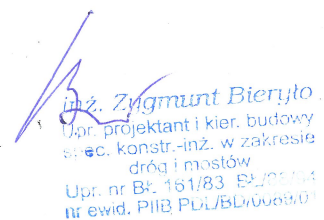 inż. Zygmunt Bieryło
Upr. projektant i kier. budowy
spec. konstr.-inż. w zakresie
dróg i mostów
Upr. nr Bł. 161/83
nr ewid. PIIB PDL/BD/0060/01